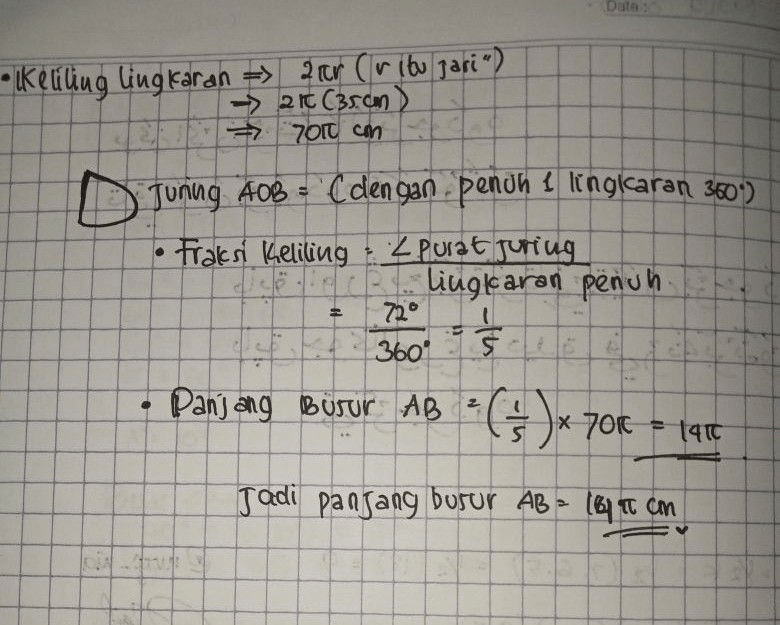 Date :
• Keliling lingkaran ⇒ 2πr (r itu jari")
→ 2π (35cm)
⇒ 70π cm
Juring AOB = (dengan penuh 1 lingkaran 360°)
• Fraksi Keliling = ∠ pusat juring / lingkaran penuh
= 72° / 360° = 1/5
• Panjang Busur AB = (1/5) × 70π = 14π
Jadi panjang busur AB = π cm